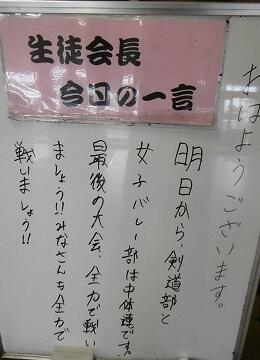 生徒会長
今日の一言
おはようございます。
明日から、剣道部と
女子バレー部は中体連です。
最後の大会、全力で戦い
ましょう!!みなさんも全力で
戦いましょう!!